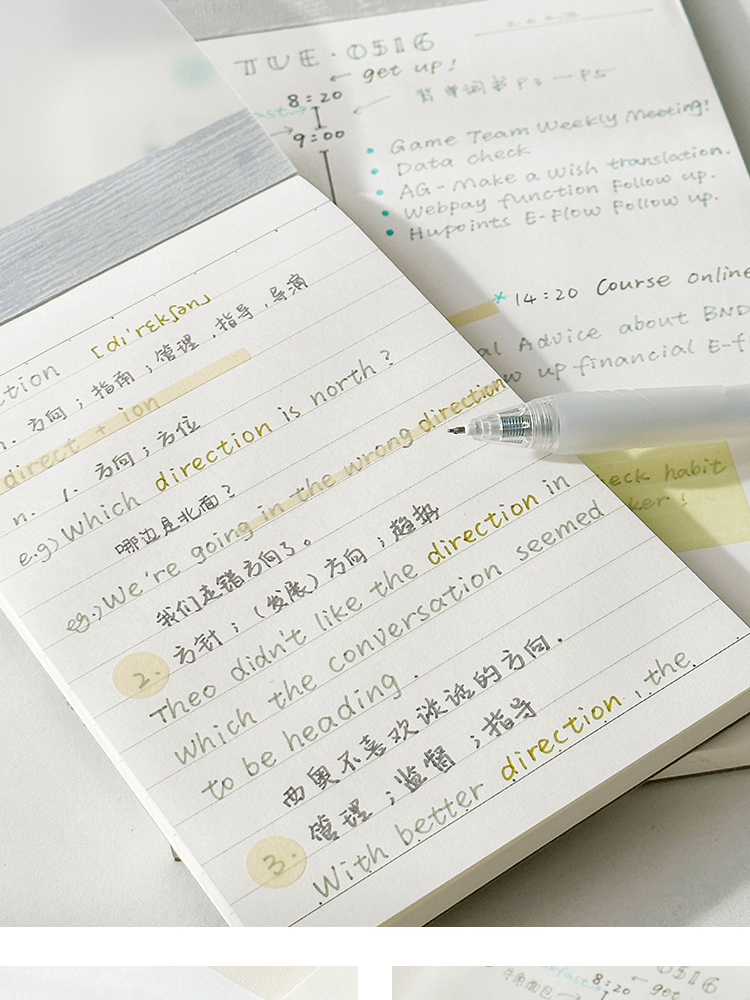 TUE·0516
← get up!
8:20
背单词书 P3 — P5
9:00
Game Team Weekly Meeting!
Data check
AG-Make a wish translation.
Webpay function Follow up.
Hupoints E-Flow Follow up.
* 14:20 Course online
al Advice about BND
w up financial E-f
eck habit
ker!
ction [dɪ'rɛkʃən]
n. 方向；指南；管理，指导，导演
direct + ion
n. 1. 方向；方位
e.g.) Which direction is north?
哪边是北面？
eg.) We're going in the wrong direction
我们走错方向了。
2. 方针；（发展）方向；趋势
Theo didn't like the direction in
which the conversation seemed
to be heading.
西奥不喜欢谈话的方向.
3. 管理；监督；指导
With better direction, the
0516
8:20
← get